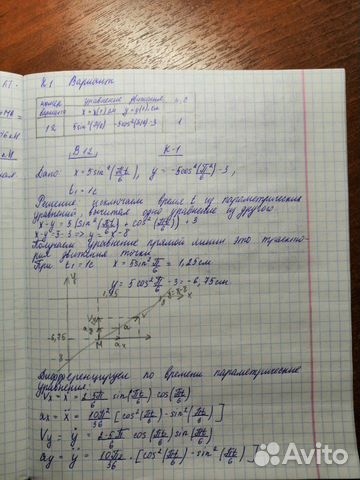 К.1 Вариант
номер варианта уравнение движения t, с
x = x(t), см y = y(t), см
12 5sin²(πt/6) -5cos²(πt/6)-3 1
В12 К-1
Дано: x = 5sin²(πt/6), y = -5cos²(πt/6) -3,
t₁ = 1c
Решение исключаем время t из параметрических
уравнений, вычитая одно уравнение из другого
x-y = 5 (sin²(πt/6) + cos²(πt/6)) + 3
x-y = 5 => y = x-8
Получаем уравнение прямой линии это траекто-
рия движения точки
При t₁ = 1c x = 5sin² π/6 = 1,25см
y = 5cos² π/6 -3 = -6,75см
y
1,25
y=x-8
x
-6,75
M
a
aₓ
8
Дифференцируем по времени параметрические
уравнения:
Vx = ẋ = 2·5π/6 sin(πt/6) cos(πt/6)
ax = ẍ = 10π²/36 [cos²(πt/6) - sin²(πt/6)]
Vy = ẏ = 2·5π/6 cos(πt/6) sin(πt/6)
ay = ÿ = 10π²/36 · [cos²(πt/6) - sin²(πt/6)]
Avito